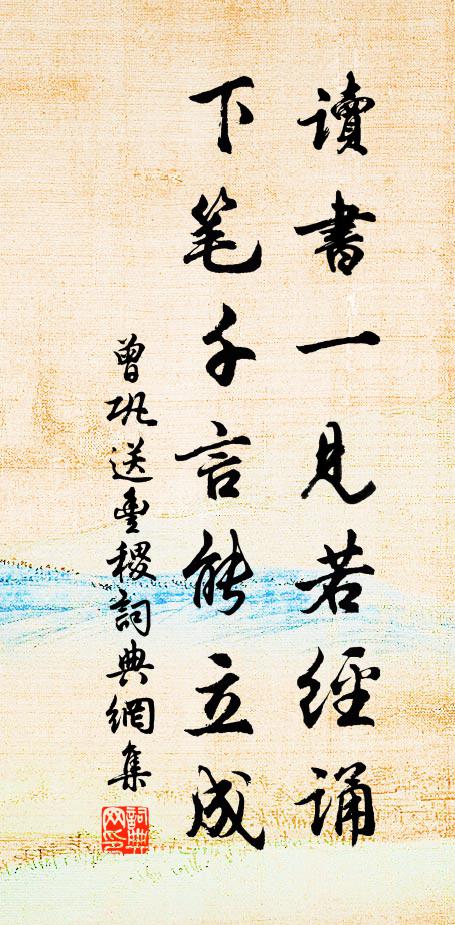 讀書一見若經誦
下笔千言能立成
曾巩送豐稷詞典網集
詞典网印